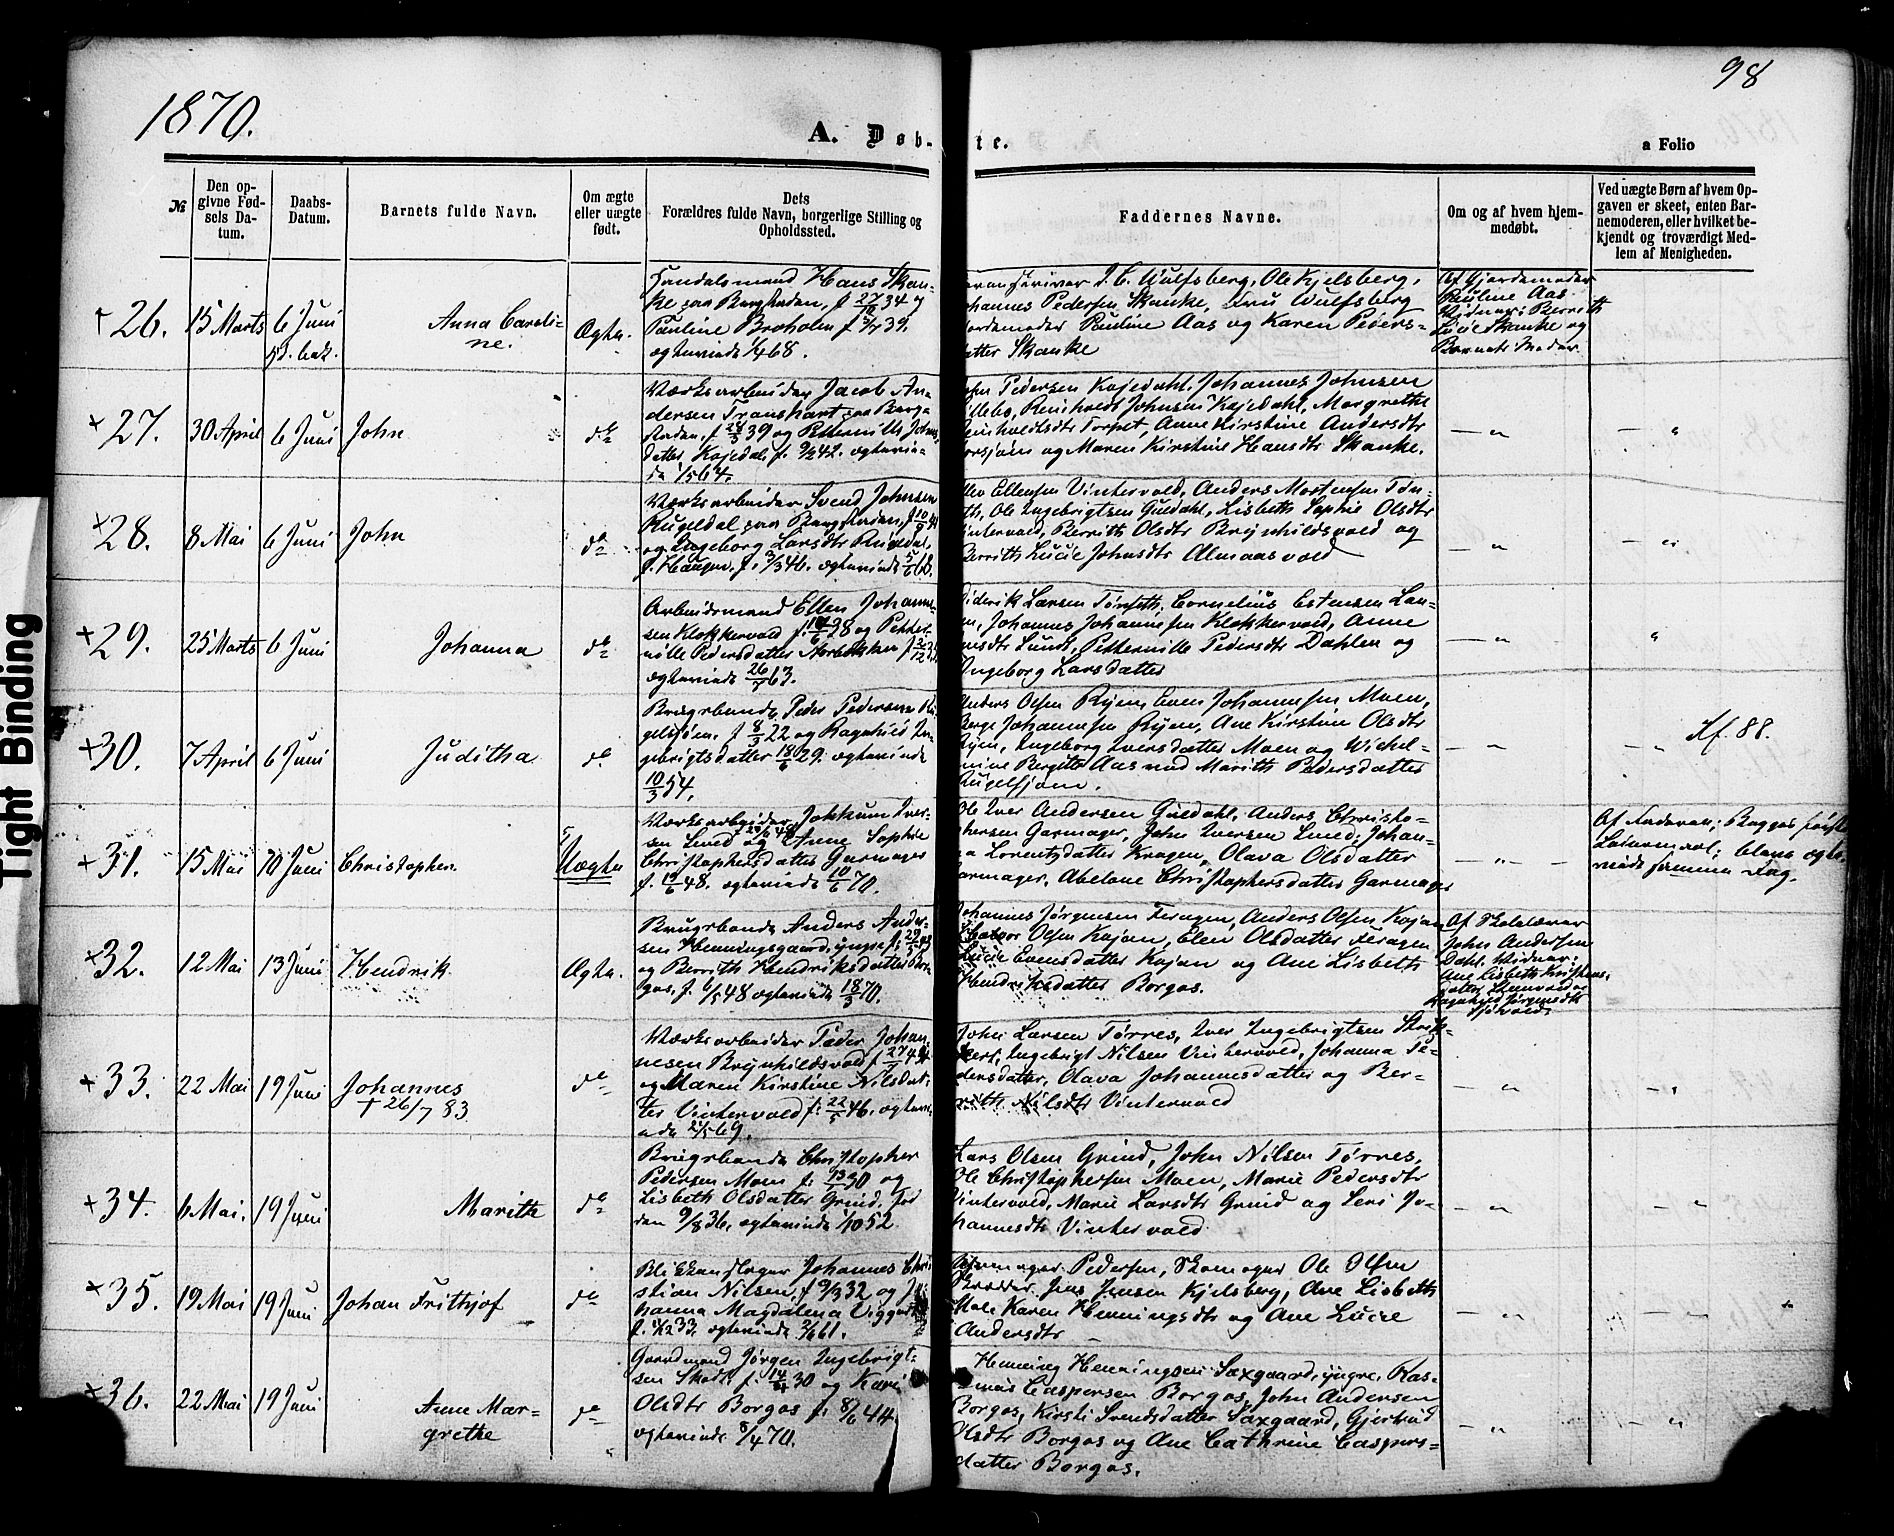 1870.
98
A. Døb-
te.
a Folio
№
Den op-
givne Fød-
sels Da-
tum.
Daabs-
Datum.
Barnets fulde Navn.
Om ægte
eller uægte
født.
Dets
Forældres fulde Navn, borgerlige Stilling og
Opholdssted.
Faddernes Navne.
Om og af hvem hjem-
medøbt.
Ved uægte Børn af hvem Op-
gaven er skeet, enten Bar-
nemoderen, eller hvilket be-
kjendt og troværdigt Med-
lem af Menigheden.
26. 15 Marts 6 Juni
Anna Caroli-
ne.
Ægte.
Handelsmand Hans Skan-
ke paa Bergstaden, f 27/34 og
Pauline Broholm f 39.
ægteviede 68.
C. Wulfsberg, Ole Kjelsberg,
Johannes Pedersen Skanke, Fru Wulfsberg
Pauline Aas og Karen Peders-
datter Skanke
Af Gjordemoder
Pauline Aas
Vidner: Berrith
Lucie Skanke og
Barnets Moder
27. 30 April 6 Juni John
do
Værksarbeider Jacob An-
dersen Transhart paa Berg-
staden, f. 24/3 39 og Petternille Johns-
datter Kojedal f. 42. ægtevie-
de 64.
Pedersen Kojedahl, Johannes Johnsen
Reinholdt Johnsen Kojedahl, Margrethe
Reinholdtsdt Torpet, Anne Kirstine Andersdt
og Maren Kirstine Hansdtr Skanke.
— " — "
28. 8 Mai 6 Juni John
do
Værksarbeider Svend Johnsen
Rugeldal paa Bergstaden, f 10/9
og Ingeborg Larsdtr Rugeldal,
f. Haugen, f. 46. ægteviede 5/6 68.
Ellev Ellensen Vintervold, Anders Mortensen Tøn-
seth, Ole Ingebrigtsen Guldahl, Lisbeth Sophie Olsdtr
Vintervold, Berrith Olsdtr Brynhildsvold og
Berrith Lucie Johnsdtr Almaasvold
— " — "
29. 25 Marts 6 Juni
Johanna
do
Arbeidsmand Ellen Johanne-
sen Klokkervold f. 38 og Petter-
nille Pedersdatter
ægteviede 26/ 63.
Diderik Larsen Tønseth, Cornelius Estensen
Johannes Johannesen Klokkervold, Anne
Lund, Petternille Pedersdtr Dahlen og
Ingeborg Larsdatter
— " "
30. 7 April 6 Juni
Juditha
do
Brugsbonde Peder Pedersen Ru-
gelsjøen, f 8/ 22 og Ragnhild In-
gebrigtsdatter 18/6 29. ægteviede
10/3 54.
Anders Olsen Ryen, Even Johannesen Moen,
Berge Johannesen Ryen, Ane Kirstine Olsdtr
Ryen, Ingeborg Iversdatter Moen og Wichel-
mine Bergitte Aas ved Marith Pedersdatter
Rugelsjøen.
— " "
Kf. 88.
31. 15 Mai 10 Juni Christopher.
Uægte
Værksarbeider Jokkum Iver-
sen Lund og Anne Sophie
Christophersdatter Garmager
f. 48. ægteviede 10/6 70.
Ole Iver Andersen Guldahl, Anders Christo-
phersen Garmager, John Iversen Lund, Johan-
na Lorentzdatter Kragen, Olava Olsdatter
Garmager, Abelone Christophersdatter Garmager
— " —
Af Faderen; Begges første
Leiermaal; bleve ægte-
viede samme Dag.
32. 12 Mai 13 Juni Hendrik
Ægte.
Brugsbonde Anders Ander-
sen Henningsgaard, yngre f. 29/
og Berrith Hendriksdatter Bor-
gos, f. 6/5 48 ægteviede 18/3 70.
Johannes Jørgensen Feragen, Anders Olsen Kojan
Olsen Kojan, Elen Olsdatter Feragen
Lucie Evensdatter Kojan og Ane Lisbeth
Hendriksdatter Borgos.
Af Skolelærer
John Andersen
Dahl. Vidner:
Ane Lisbeth
datter og
Ragnhild Jørgensdtr
Sjøvold.
33. 22 Mai 19 Juni Johannes
† 26/7 83
do
Værksarbeider Peder Johan-
nesen Brynhildsvold f 27/
og Maren Kirstine Nilsdat-
ter Vintervold f: 22/5 46. ægtevi-
ede 69.
John Larsen Tørres, Iver Ingebrigtsen
Ingebrigt Nilsen Vintervold, Johanna Pe-
dersdatter, Olava Johannesdatter og Ber-
rith Nilsdtr Vintervold
— " "
34. 6 Mai. 19 Juni
Marith
do
Brugsbonde Christopher
Pedersen Moen f: 13/ 30 og
Lisbeth Olsdatter Grind, fød
den 9/8 36, ægteviede 52.
Lars Olsen Grind, John Nilsen Tørres,
Ole Christophersen Moen, Marie Pedersdtr
Vintervold, Marie Larsdtr Grind og Seri Jo-
hannesdtr Vintervold
— " — "
35. 19 Mai 19 Juni Johan Frithjof
do
Blikkenslager Johannes Chri-
stian Nilsen, f 32 og Jo-
hanna Magdalena Viggen
f. 33. ægteviede 61.
Pedersen, Skomager Ole Olsen
Jens Jensen Kjelsberg, Ane Lisbeth
Karen Henningsdtr og Ane Lucie
Andersdtr
" "
36. 22 Mai 19 Juni
Anne Mar-
grethe
do
Gaardmand Jørgen Ingebrigt-
sen Skott f. 14/ 30 og Kari
Olsdtr Borgos f. 8/6 44.
ægteviede 8/4 70.
Henning Henningsen Saxgaard, yngre, Ras-
mus Caspersen Borgos, John Andersen
Borgos, Kirsti Svendsdatter Saxgaard, Gjertrud
Olsdtr Borgos og Ane Cathrine Caspers-
datter Borgos.
— " "
Tight Binding